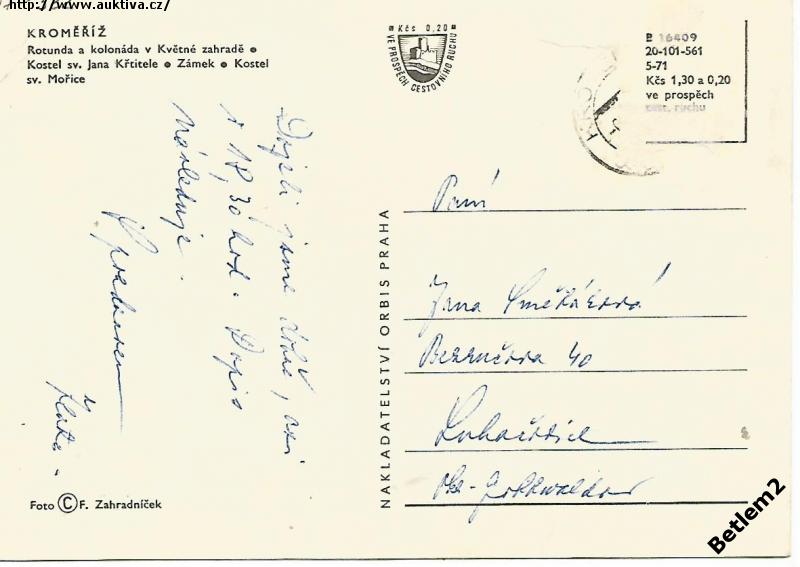 http://www.auktiva.cz/
KROMĚŘÍŽ
Rotunda a kolonáda v Květné zahradě •
Kostel sv. Jana Křtitele • Zámek • Kostel
sv. Mořice
Kčs 0,20
VE PROSPĚCH CESTOVNÍHO RUCHU
P 16409
20-101-561
5-71
Kčs 1,30 a 0,20
ve prospěch
cest. ruchu
Dojeli jsme dobře, asi
v 18,30 hod. Dopis
následuje.
S pozdravem
Zlatka
NAKLADATELSTVÍ ORBIS PRAHA
Paní
Jana
Bezručova 40
Luhačovice
okr. Gottwaldov
Foto © F. Zahradníček
Betlem2